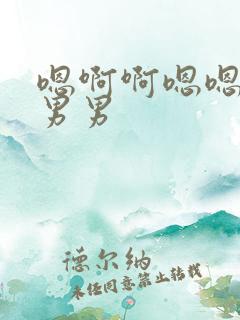 嗯啊啊嗯嗯
男男
德尔纳
未经同意禁止转载